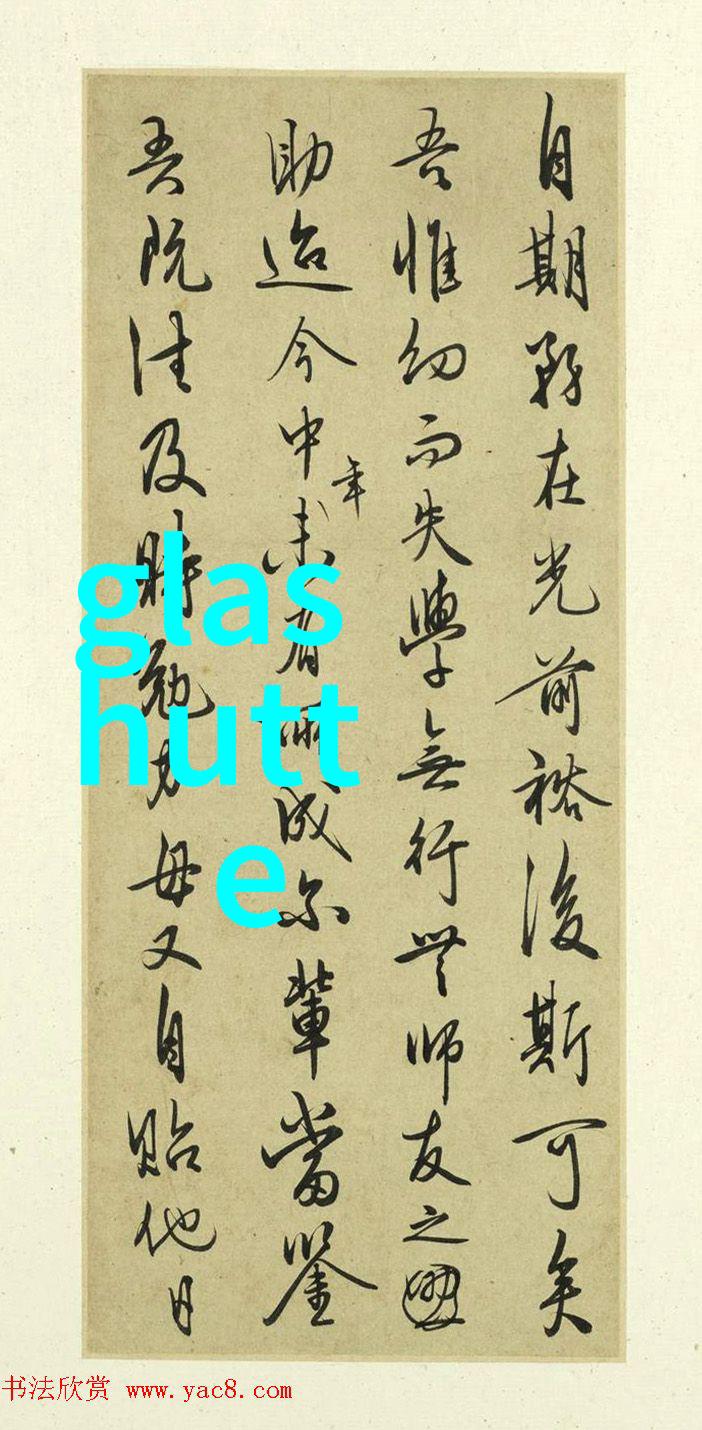 自期務在光前裕後斯可矣
吾惟幼而失學無行無師友之
助迨今中年未有所成尔輩當鑒
吾既往及時勉力毋又自貽他日
glas
hutt
e
书法欣赏 www.yac8.com